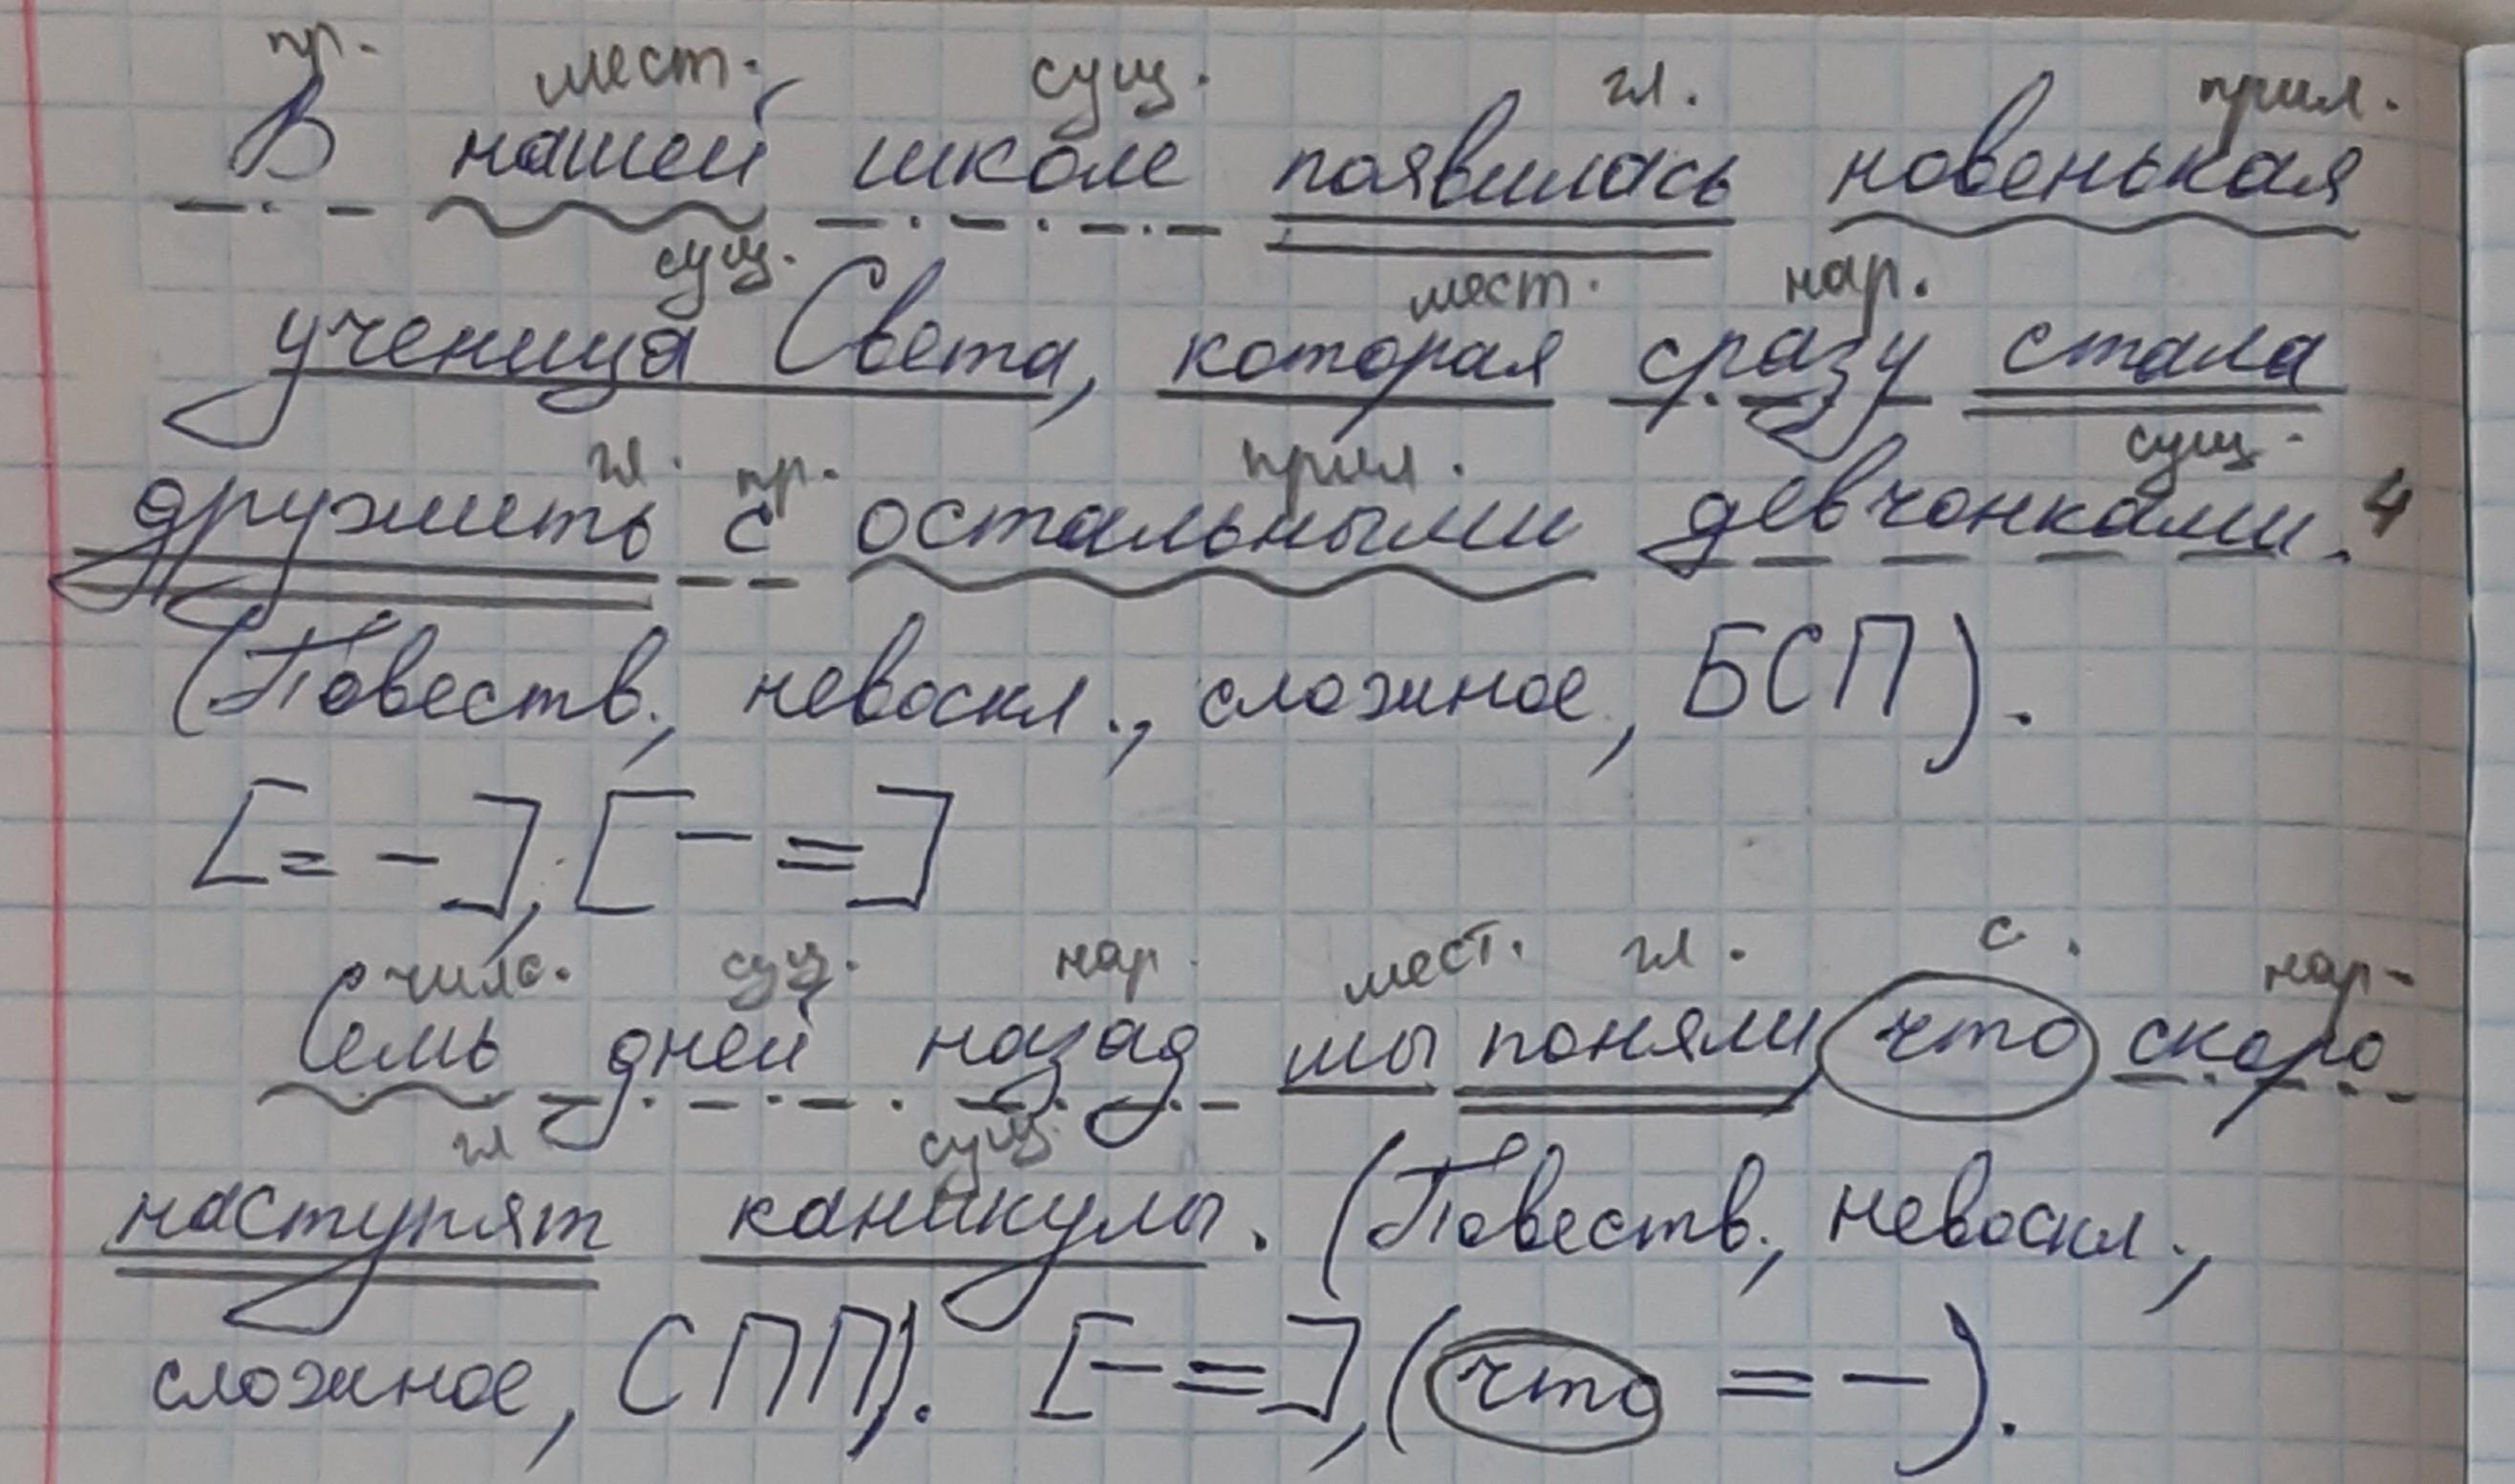 пр. мест. сущ. гл. прил.
В нашей школе появилась новенькая
сущ. мест. нар.
ученица Света, которая сразу стала
гл. пр. прил. сущ.
дружить с остальными девчонками.4
(Повеств., невоскл., сложное, БСП).
[= -], [- =]
числ. сущ. нар. мест. гл. с. нар.
Семь дней назад мы поняли, что скоро
гл сущ.
наступят каникулы. (Повеств., невоскл.,
сложное, СПП). [- =], (что = -).